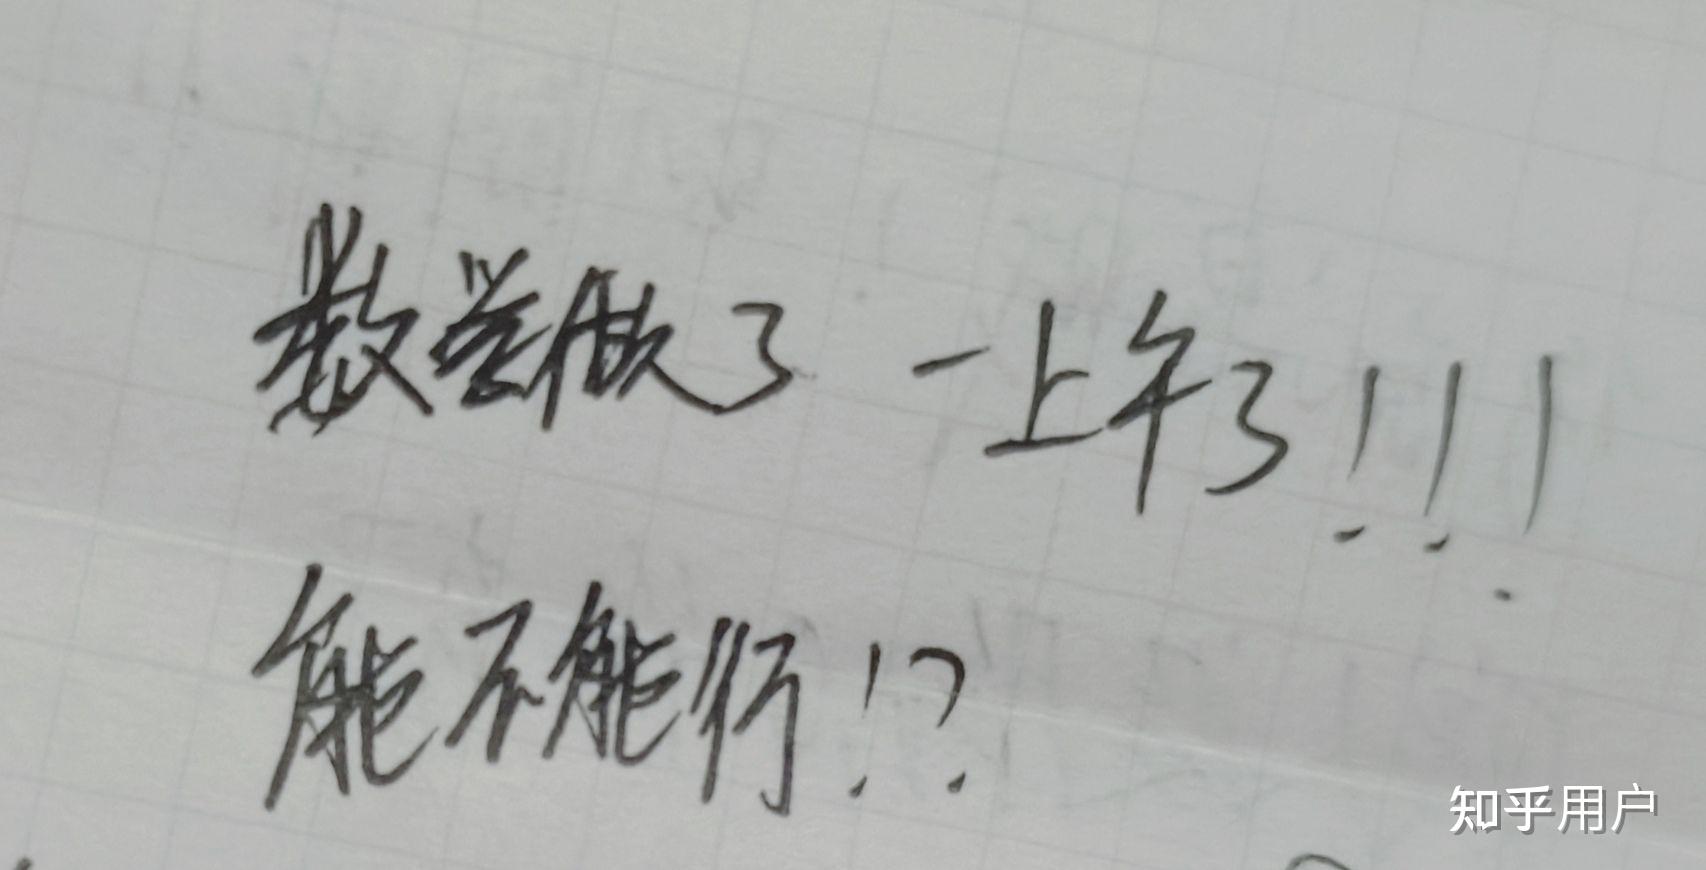 数学做了一上午了!!!
能不能行!?
知乎用户